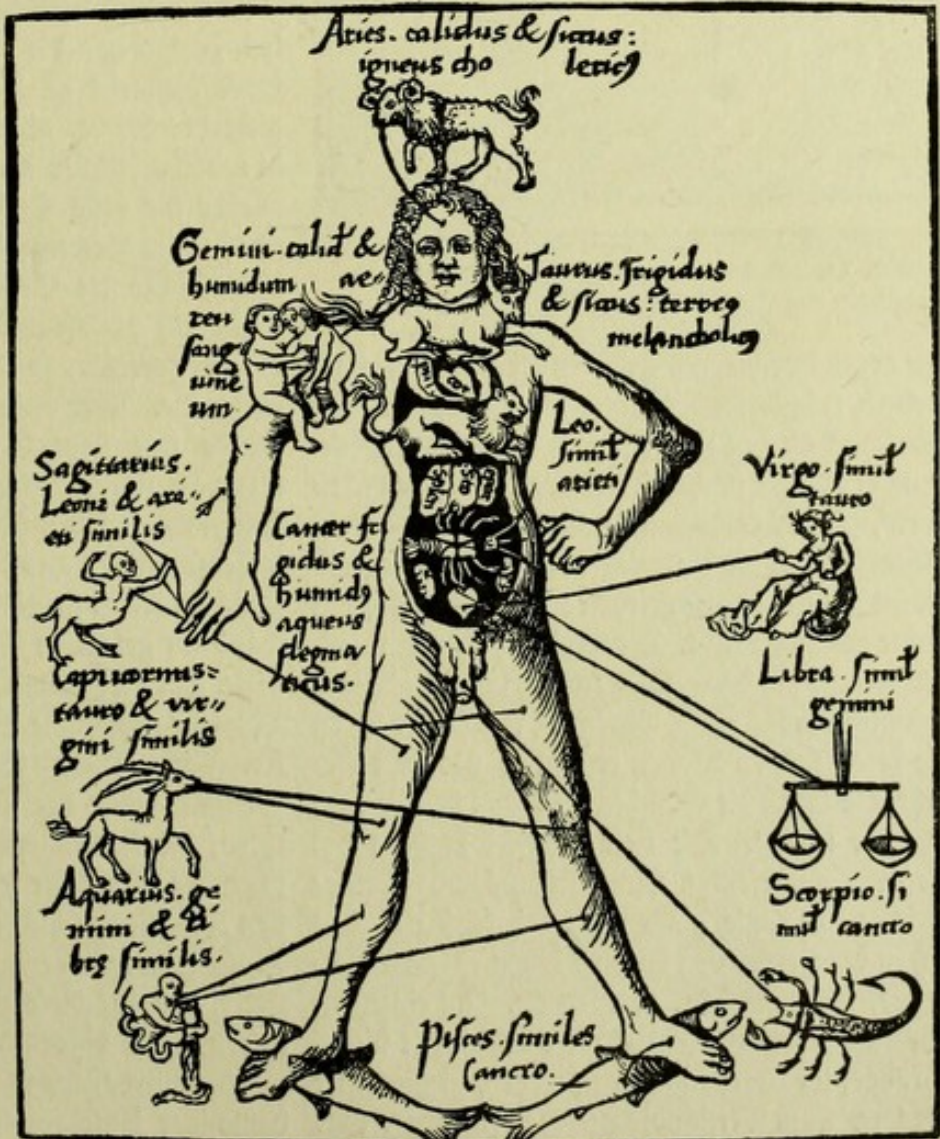 Aries. calidus & siccus:
igneus cho lericꝰ
Gemini. calid &
humidum ae=
reu
sang
uine
um
Taurus. frigidus
& sicus: terreꝰ
melancholicꝰ
Leo.
simil
arieti
Sagittarius.
Leoni & ari=
eti similis
Virgo. simil
tauro
Cancer fri
gidus &
humidꝰ
aqueus
flegma
ticus.
Capricornus=
tauro & vir=
gini similis
Libra. simil
gemini
Aquarius. ge
mini & li
brę similis.
Scorpio. si
mil cancro
Pisces. similes
Cancro.